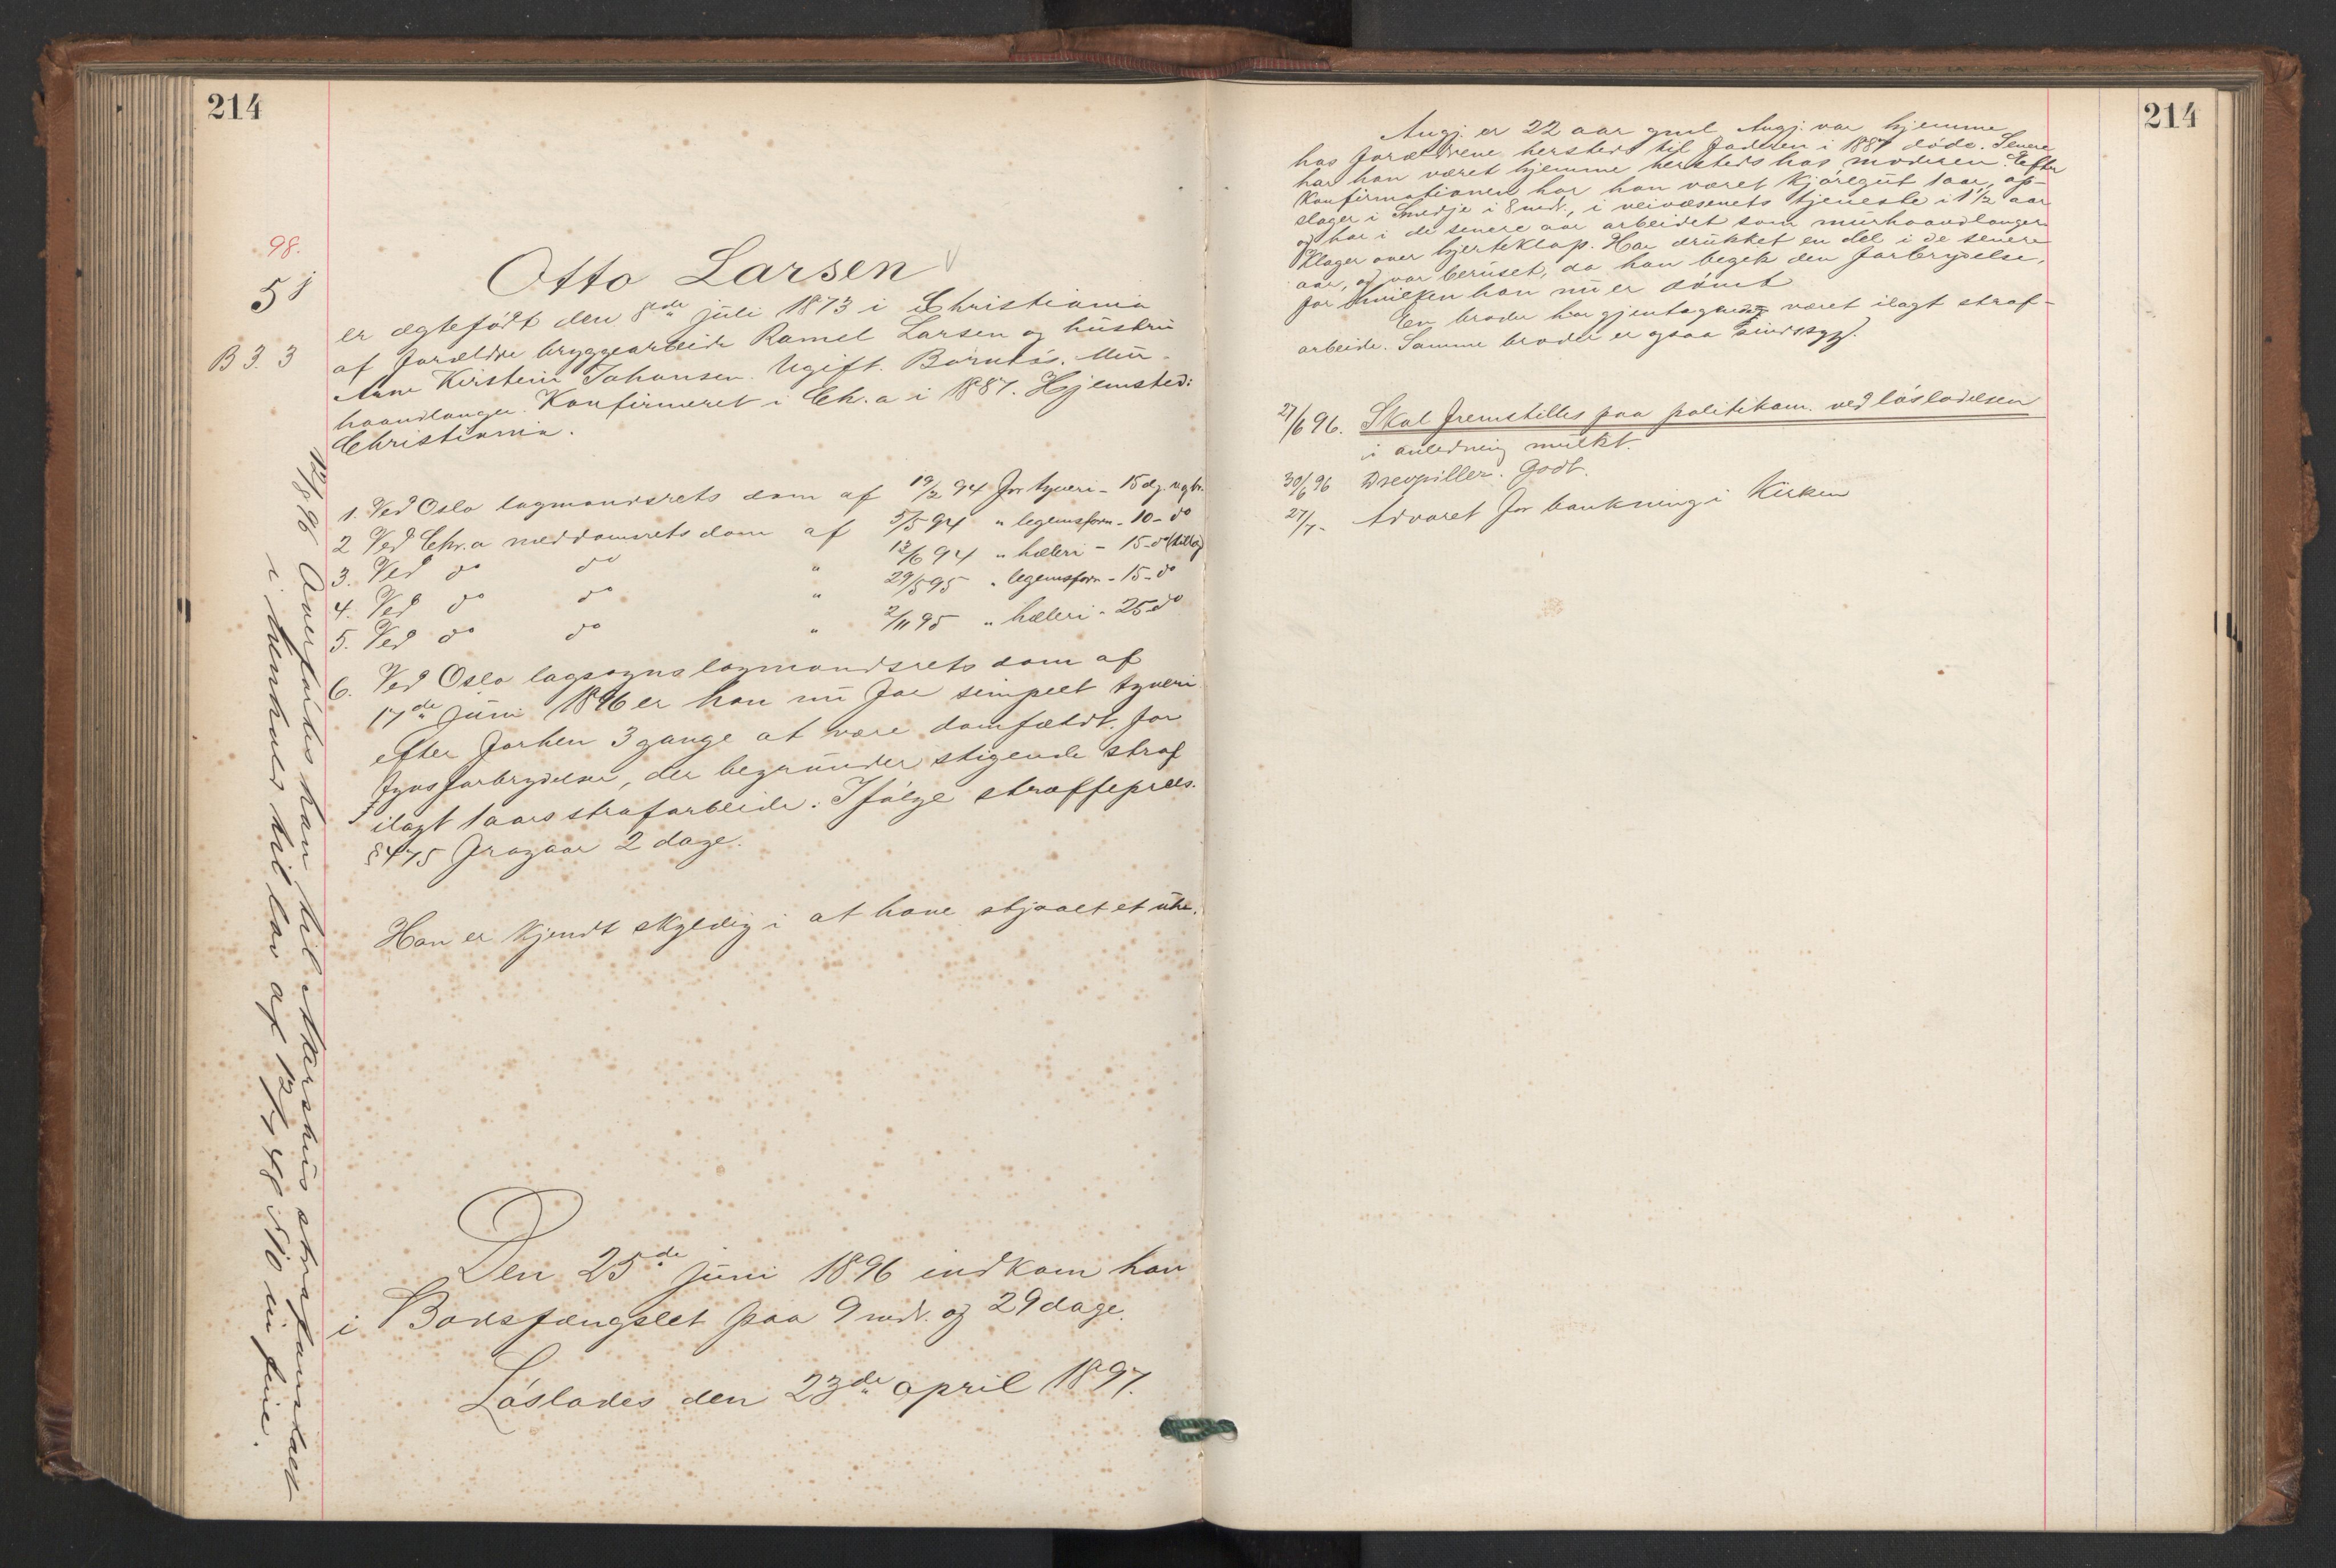 214
98.
58
B 3. 3
Otto Larsen
er ægtefødt den 8de juli 1873 i Christiania
af Forældre bryggearbeider Ramel Larsen og hustru
Anne Kirstine Johansen. Ugift. Barnløs. Mur-
haandlanger. Konfirmeret i Ch.a i 1887. Hjemsted:
Christiania.
1. Ved Oslo lagmandsrets dom af 19/2 94 for tyveri - 15 dg. v. og br.
2 Ved Chr.a meddomsrets dom af 5/5 94 " legemsforn. - 10 - do
3. Ved do do " 12/6 94 " hæleri - 15 - do (tillæg)
4. Ved do do " 29/5 95 " legemsforn - 15 - do
5. Ved do do " 2/11 95 " hæleri - 25 - do
6. Ved Oslo lagsogns lagmandsrets dom af
17de juni 1896 er han nu for simpelt tyveri
efter forhen 3 gange at være domfældt for
tyvsforbrydelser, der begrunder stigende straf
ilagt 1 aars strafarbeide. Ifølge straffeproces.
§ 475 fragaar 2 dage.
Han er kjendt skyldig i at have stjaalet et uhr.
Den 25de juni 1896 indkom han
i Bodsfængslet paa 9 mdr. og 29 dage.
Løslades den 23de april 1897.
12/8 96 Overførtes han til Akershus strafanstalt
i henhold til lov af 12/7 48 § 10 in fine.
214
Angj. er 22 aar gml. Angj. var hjemme
hos forældrene hersteds til faderen i 1887 døde. Senere
har han været hjemme hersteds hos moderen. Efter
Konfirmationen har han været Kjøregut 1 aar, op-
slager i Smedje i 8 mdr., i veivæsenets tjeneste i 1 1/2 aar
og har i de senere aar arbeidet som murhaandlanger
Klager over hjerteklap. Har drukket en del i de senere
aar, og var beruset, da han begik den forbrydelse,
for hvilken han nu er dømt
En broder har gjentagende været ilagt straf-
arbeide. Samme broder er ogsaa sindssyg.
27/6 96. Skal fremstilles paa politikam. ved løsladelsen
i anledning mulkt.
30/6 96 Drevpiller. Godt.
27/7 - Advaret for bankning i Kirken